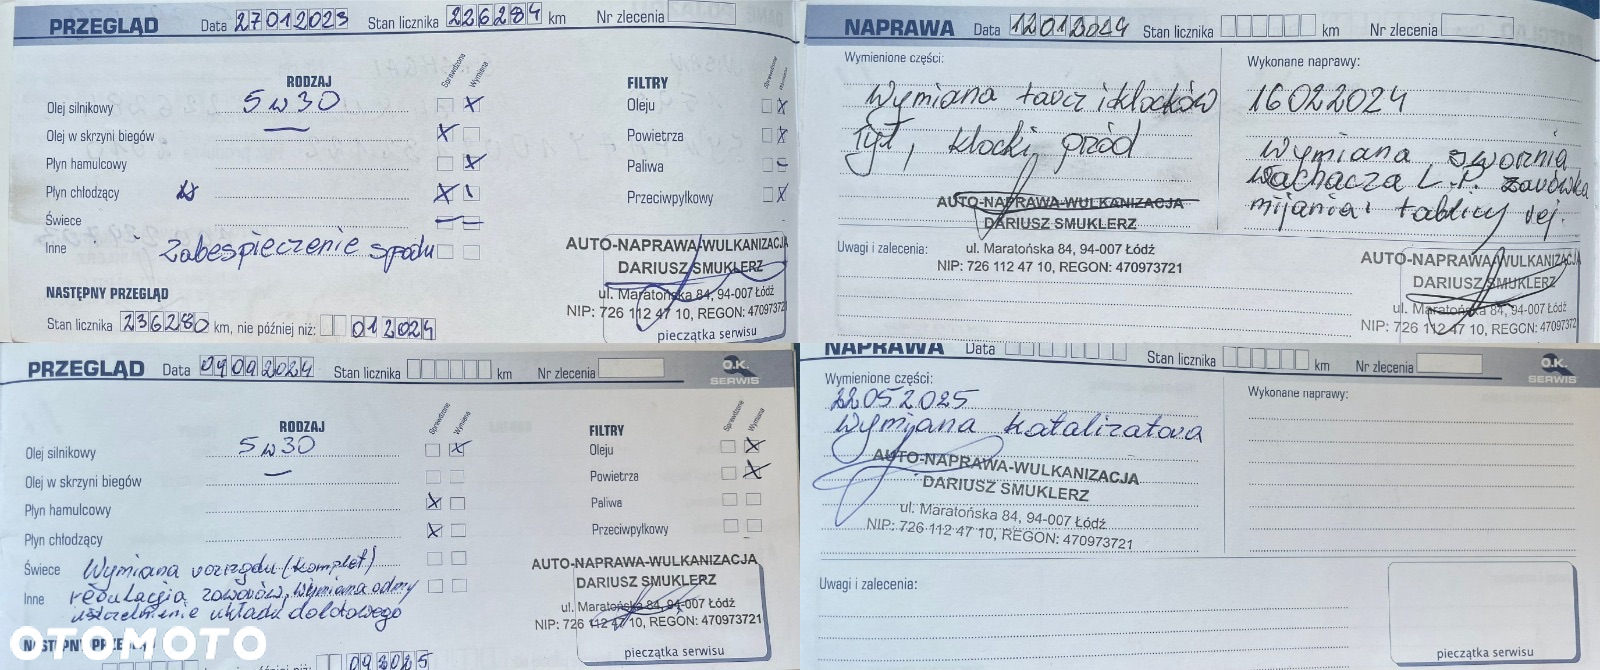 PRZEGLĄD Data 27012023 Stan licznika 226284 km Nr zlecenia
RODZAJ Sprawdzono Wymiana
Olej silnikowy 5w30
Olej w skrzyni biegów
Płyn hamulcowy
Płyn chłodzący
Świece
Inne Zabespieczenie spodu
FILTRY
Oleju
Powietrza
Paliwa
Przeciwpyłkowy
NASTĘPNY PRZEGLĄD
Stan licznika 236280 km, nie później niż: 012024
AUTO-NAPRAWA-WULKANIZACJA
DARIUSZ SMUKLERZ
ul. Maratońska 84, 94-007 Łódź
NIP: 726 112 47 10, REGON: 470973721
pieczątka serwisu
NAPRAWA Data 12012024 Stan licznika km Nr zlecenia
Wymienione części:
Wymiana tarcz i klocków
Tył, klocki przód
AUTO-NAPRAWA-WULKANIZACJA
DARIUSZ SMUKLERZ
ul. Maratońska 84, 94-007 Łódź
NIP: 726 112 47 10, REGON: 470973721
Uwagi i zalecenia:
Wykonane naprawy:
16022024
Wymiana swornia
wachacza L.P. żarówka
mijania i tablicy rej.
AUTO-NAPRAWA-WULKANIZACJA
DARIUSZ SMUKLERZ
ul. Maratońska 84, 94-007 Łódź
NIP: 726 112 47 10, REGON: 470973721
PRZEGLĄD Data 09092024 Stan licznika km Nr zlecenia
O.K. SERWIS
RODZAJ Sprawdzono Wymiana
Olej silnikowy 5w30
Olej w skrzyni biegów
Płyn hamulcowy
Płyn chłodzący
Świece Wymiana rozrządu (komplet)
Inne regulacja zaworów, wymiana odmy
uszczelnienie układu dolotowego
FILTRY Sprawdzono Wymiana
Oleju
Powietrza
Paliwa
Przeciwpyłkowy
AUTO-NAPRAWA-WULKANIZACJA
DARIUSZ SMUKLERZ
ul. Maratońska 84, 94-007 Łódź
NIP: 726 112 47 10, REGON: 470973721
pieczątka serwisu
NASTĘPNY PRZEGLĄD
092025
OTOMOTO
NAPRAWA Data Stan licznika km Nr zlecenia
O.K. SERWIS
Wymienione części:
22052025
Wymijana katalizatora
AUTO-NAPRAWA-WULKANIZACJA
DARIUSZ SMUKLERZ
ul. Maratońska 84, 94-007 Łódź
NIP: 726 112 47 10, REGON: 470973721
Wykonane naprawy:
Uwagi i zalecenia:
pieczątka serwisu